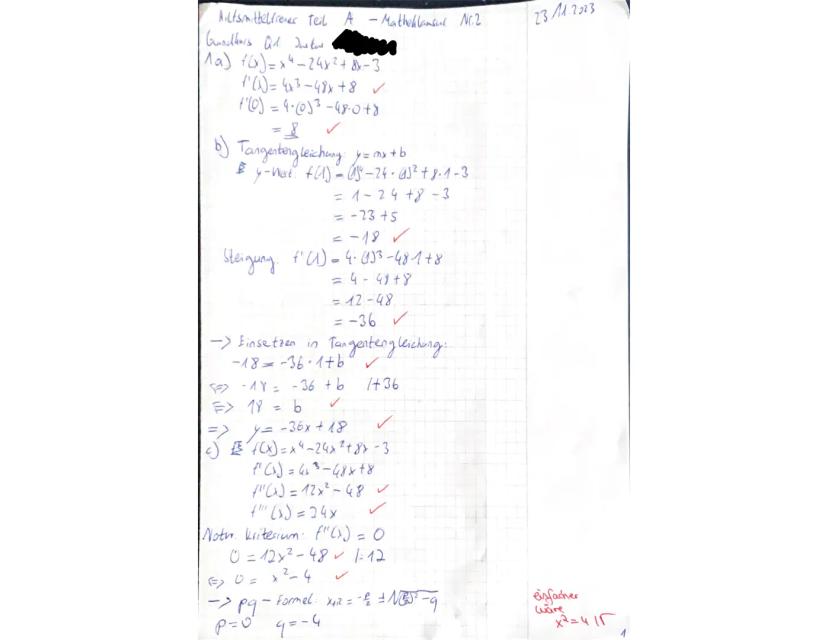 Hilfsmittelfreier Teil A - Matheklausur Nr.2
23.11.2023
Grundkurs Q1
1a) f(x) = x⁴ - 24x² + 8x - 3
f'(x) = 4x³ - 48x + 8 ✓
f'(0) = 4·(0)³ - 48·0 + 8
= 8 ✓
b) Tangentengleichung: y = mx + b
y-Wert: f(1) = (1)⁴ - 24·(1)² + 8·1 - 3
= 1 - 24 + 8 - 3
= -23 + 5
= -18 ✓
Steigung: f'(1) = 4·(1)³ - 48·1 + 8
= 4 - 48 + 8
= 12 - 48
= -36 ✓
-> Einsetzen in Tangentengleichung:
-18 = -36·1 + b ✓
<=> -18 = -36 + b /+36
<=> 18 = b ✓
=> y = -36x + 18 ✓
c) f(x) = x⁴ - 24x² + 8x - 3
f'(x) = 4x³ - 48x + 8
f''(x) = 12x² - 48 ✓
f'''(x) = 24x ✓
Notw. Kriterium: f''(x) = 0
0 = 12x² - 48 ✓ /:12
<=> 0 = x² - 4 ✓
-> pq-Formel: x₁,₂ = -p/2 ± √((p/2)² - q)
p = 0 q = -4
einfacher
wäre
x² = 4 /√
1